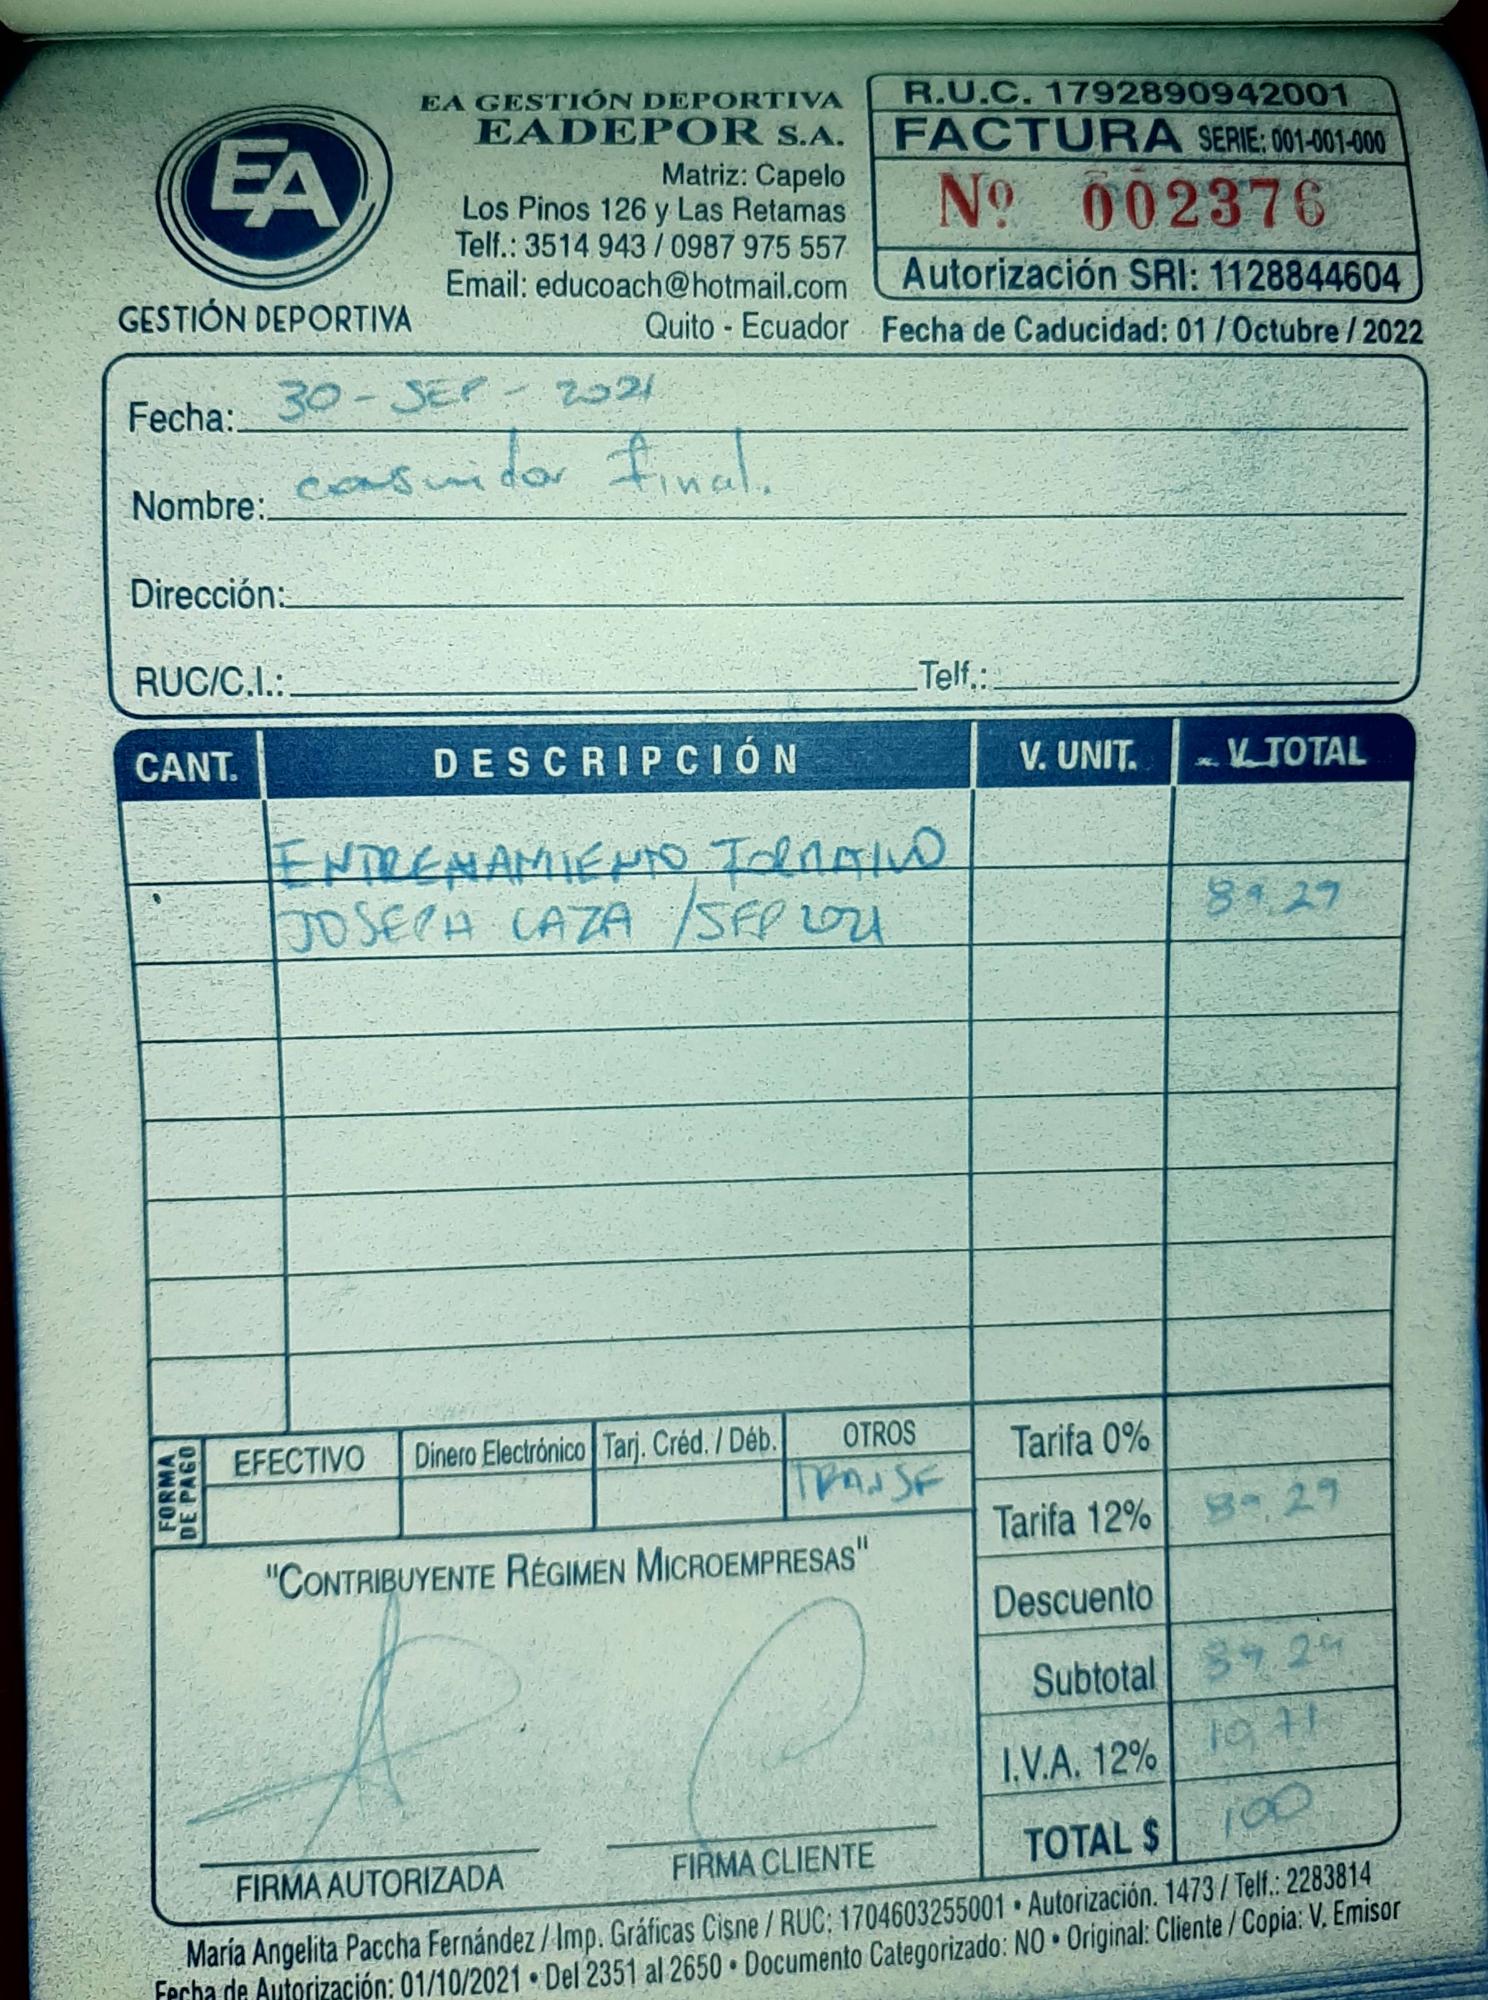 EA
GESTIÓN DEPORTIVA
EA GESTIÓN DEPORTIVA
EADEPOR S.A.
Matriz: Capelo
Los Pinos 126 y Las Retamas
Telf.: 3514 943 / 0987 975 557
Email: educoach@hotmail.com
Quito - Ecuador
R.U.C. 1792890942001
FACTURA SERIE: 001-001-000
Nº 002376
Autorización SRI: 1128844604
Fecha de Caducidad: 01 / Octubre / 2022
Fecha: 30 - SEP - 2021
Nombre: consumidor final.
Dirección:
RUC/C.I.: Telf.:
CANT. DESCRIPCIÓN V. UNIT. V. TOTAL
ENTRENAMIENTO FORMATIVO
JOSEPH CAZA / SEP 2021 89.29
FORMA DE PAGO
EFECTIVO Dinero Electrónico Tarj. Créd. / Déb. OTROS
TRANSF
Tarifa 0%
Tarifa 12% 89.29
Descuento
Subtotal 89.29
I.V.A. 12% 10.71
TOTAL $ 100
"CONTRIBUYENTE RÉGIMEN MICROEMPRESAS"
FIRMA AUTORIZADA FIRMA CLIENTE
María Angelita Paccha Fernández / Imp. Gráficas Cisne / RUC: 1704603255001 • Autorización. 1473 / Telf.: 2283814
Fecha de Autorización: 01/10/2021 • Del 2351 al 2650 • Documento Categorizado: NO • Original: Cliente / Copia: V. Emisor